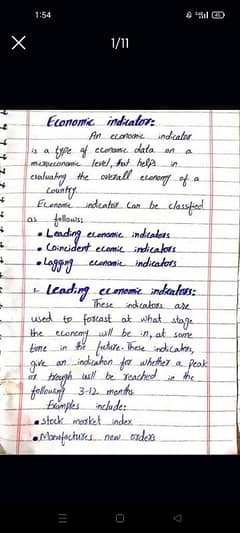 1:54
1/11
Economic indicators:
An economic indicator
is a type of economic data on a
microeconomic level, that helps in
evaluating the overall economy of a
country.
Economic indicator can be classfied
as follows:
• Leading economic indicators
• Coincident ecomic indicators
• Lagging economic indicators
1. Leading economic indicators:
These indicators are
used to forcast at what stage
the economy will be in, at some
time in the future. These indicators,
give an indication for whether a peak
or trough will be reached in the
following 3-12 months.
Examples include:
• stock market index
• Manufactures new orders